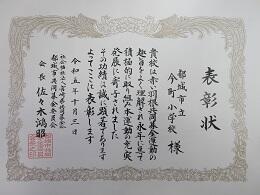 表彰状
都城市立
今町小学校 様
貴校は赤い羽根共同募金運動の
趣旨をよく理解され永年に亘って
積極的に取り組み本運動の充実
発展に寄与されました
その功績は誠に顕著であります
よってここに表彰します
令和五年十月三日
社会福祉法人宮崎県共同募金会
都城市共同募金委員会
会長 佐々木鴻昭